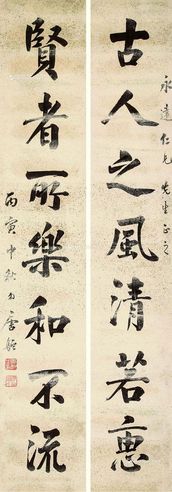 永遠仁兄先生正之
古人之風清若惠
賢者所樂和不流
丙寅中秋